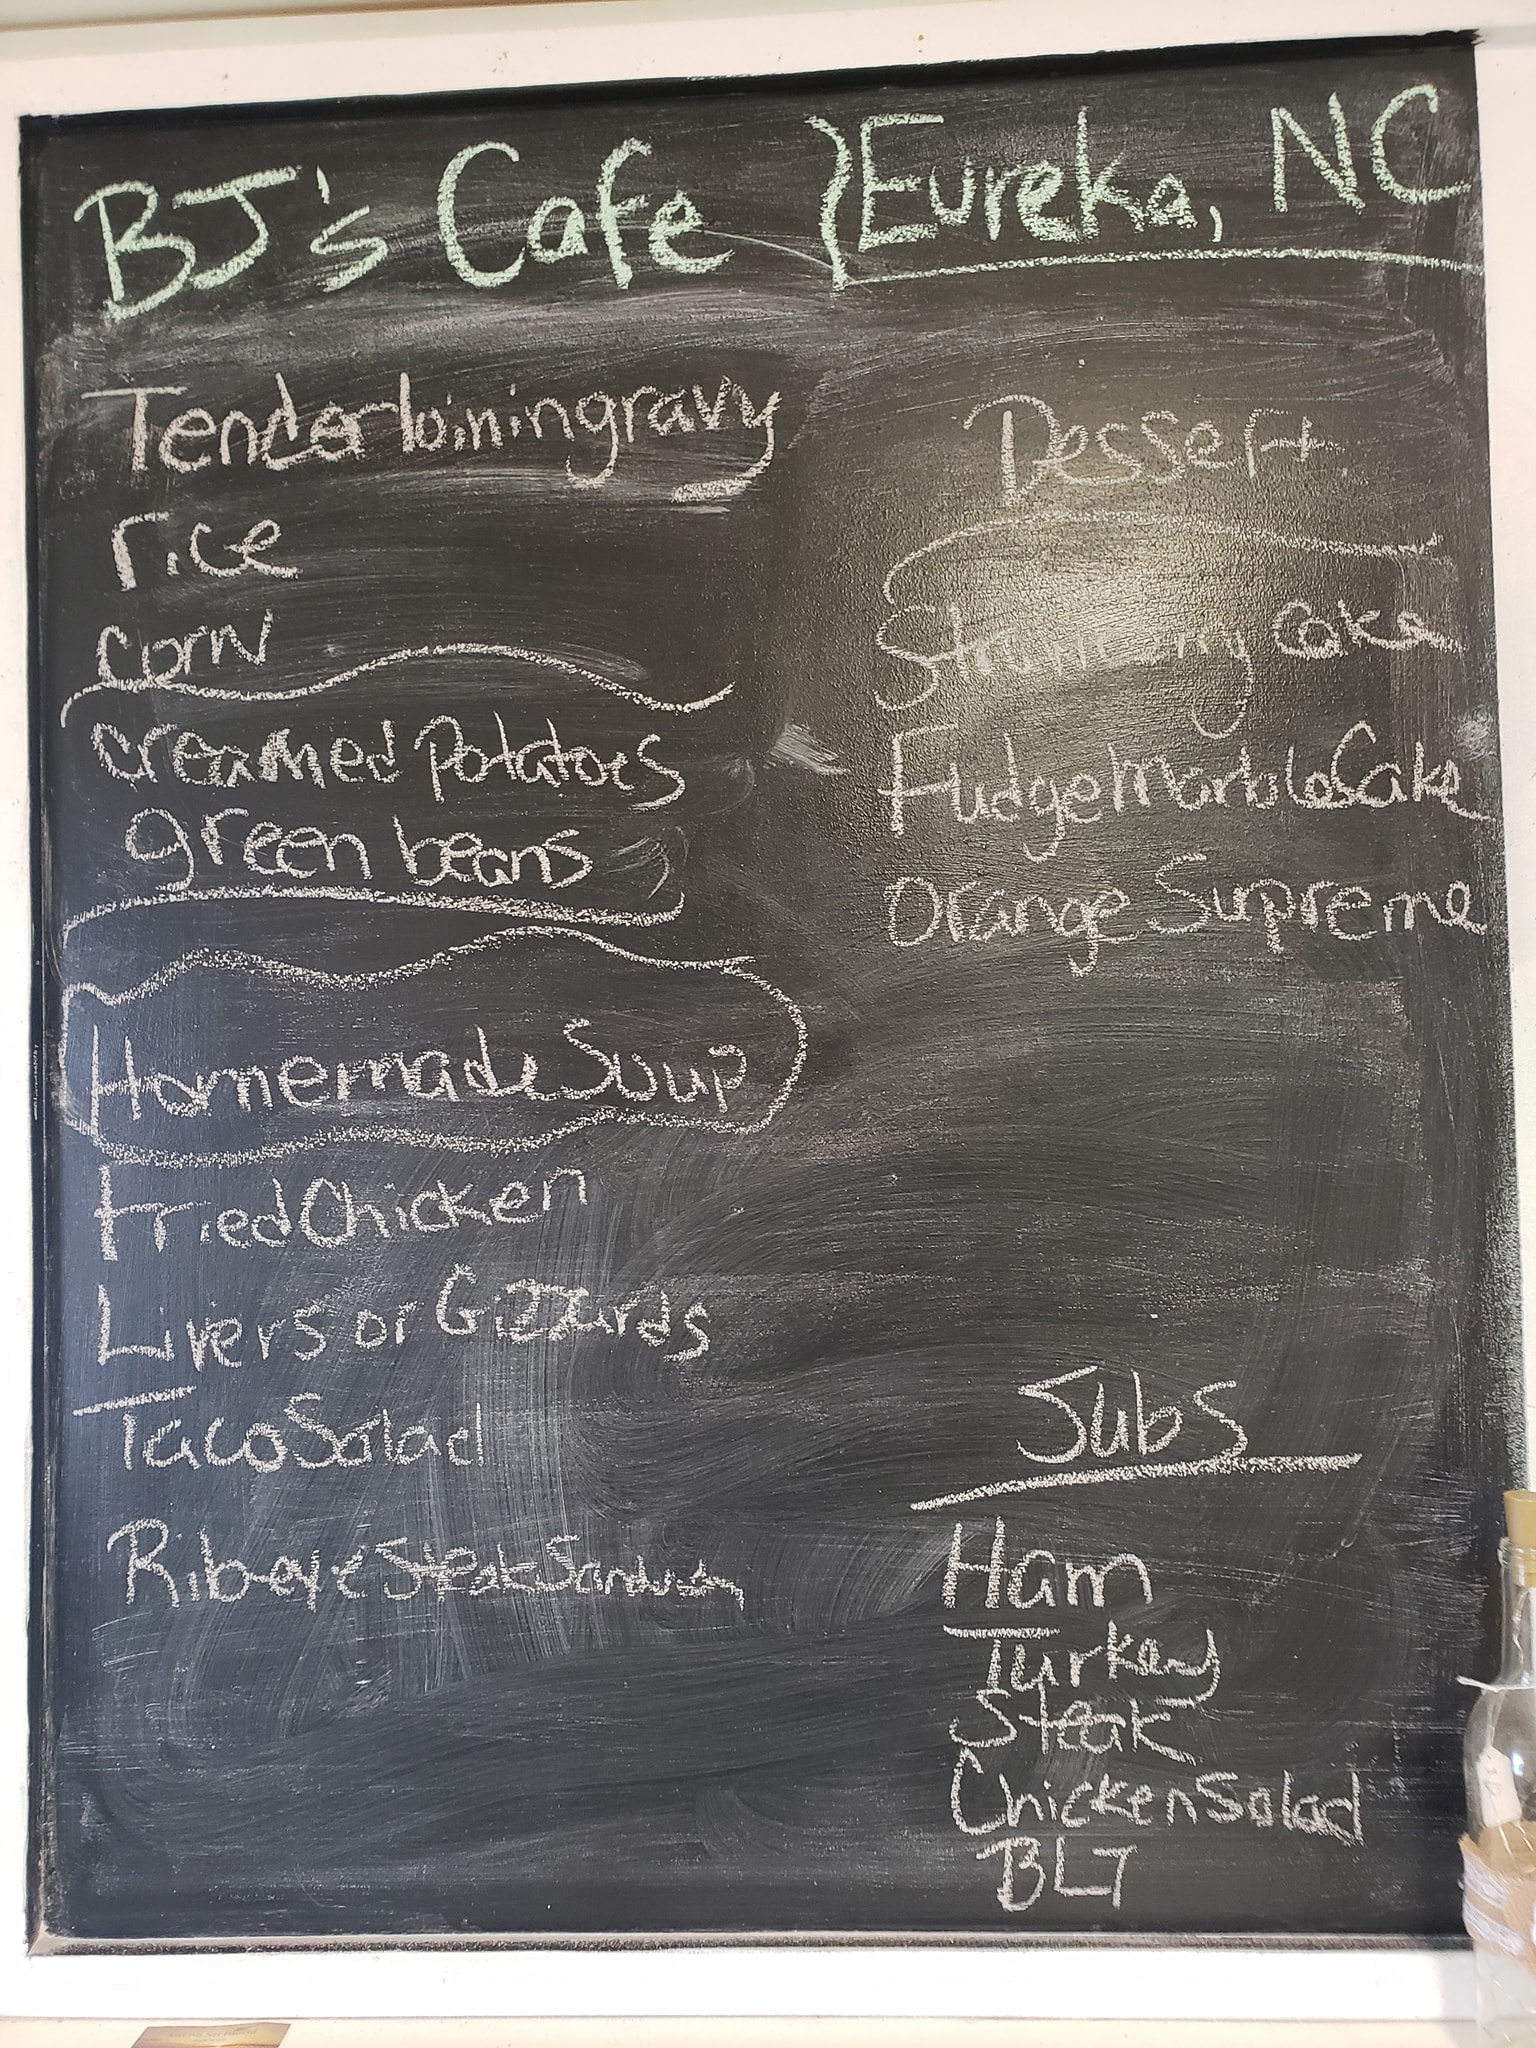 BJ's Cafe
Eureka, NC
Tenderloin in gravy
rice
corn
creamed potatoes
green beans
Homemade Soup
Fried Chicken
Livers or Gizzards
Taco Salad
Ribeye Steak Sandwich
Dessert
Strawberry Cake
Fudge Marble Cake
Orange Supreme
Subs
Ham
Turkey
Steak
Chicken Salad
BLT